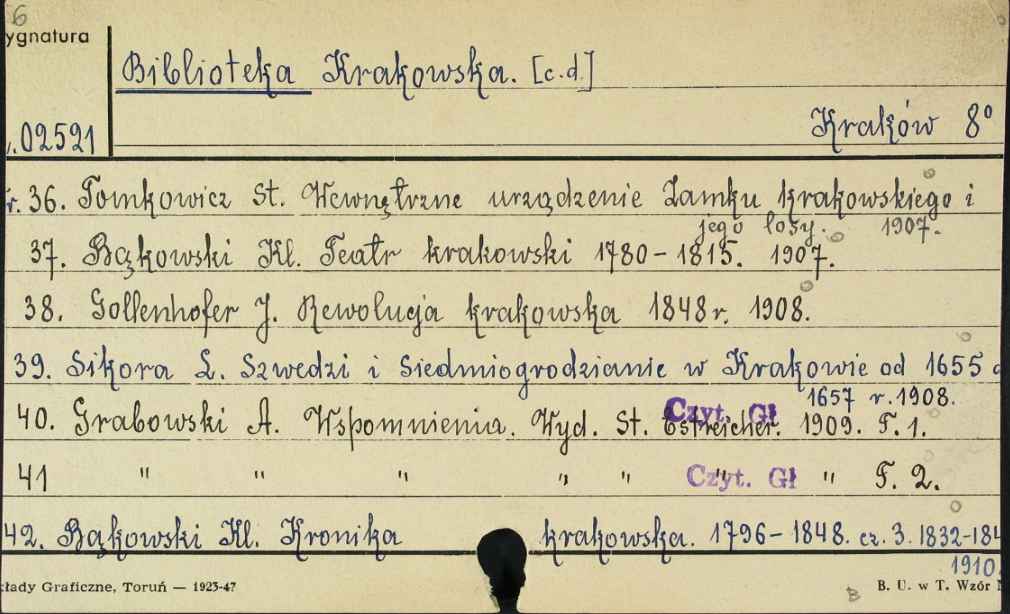 6
ygnatura
Biblioteka Krakowska. [c.d.]
02521
Kraków 8°
r. 36. Tomkowicz St. Wewnętrzne urządzenie Zamku krakowskiego i
jego losy. 1907.
37. Bąkowski Kl. Teatr krakowski 1780-1815. 1907.
38. Gollenhofer J. Rewolucja krakowska 1848 r. 1908.
39. Sikora L. Szwedzi i Siedmiogrodzianie w Krakowie od 1655 d
1657 r. 1908.
40. Grabowski A. Wspomnienia. Wyd. St. Estreicher. 1909. T. 1.
Czyt. Gł
41 " " " " " " " T. 2.
Czyt. Gł
42. Bąkowski Kl. Kronika krakowska. 1796-1848. cz. 3. 1832-184
1910.
kłady Graficzne, Toruń — 1923-47
B
B. U. w T. Wzór N